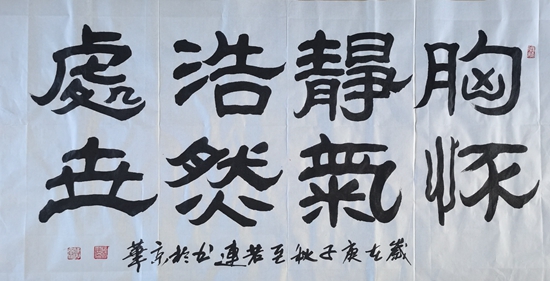 胸怀
靜氣
浩然
處世
歲在庚子秋 若連书於京華